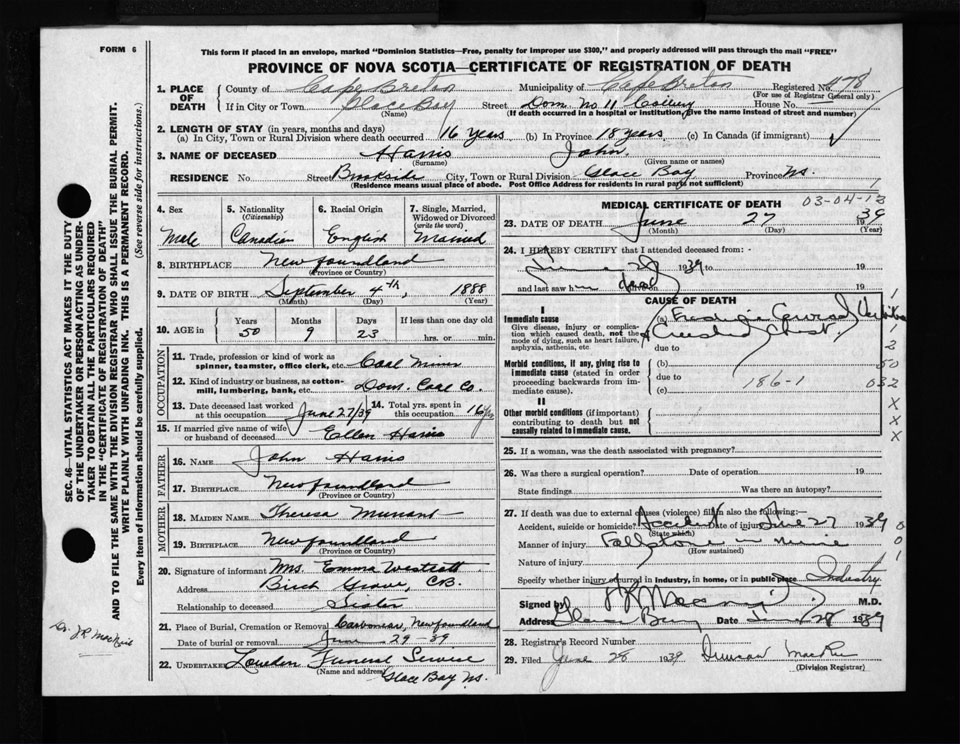 FORM 6
This form if placed in an envelope, marked "Dominion Statistics—Free, penalty for improper use $300," and properly addressed will pass through the mail "FREE"
PROVINCE OF NOVA SCOTIA—CERTIFICATE OF REGISTRATION OF DEATH
1. PLACE OF DEATH County of Cape Breton Municipality of Cape Breton Registered No. 478
(For use of Registrar General only)
If in City or Town Glace Bay Street Dom. No 11 Colliery House No.
(Name) (If death occurred in a hospital or institution, give the name instead of street and number)
2. LENGTH OF STAY (in years, months and days)
(a) In City, Town or Rural Division where death occurred 16 years (b) In Province 18 years (c) In Canada (if immigrant)
3. NAME OF DECEASED Harris John
(Surname) (Given name or names)
RESIDENCE No. Street Brookside City, Town or Rural Division Glace Bay Province N.S.
(Residence means usual place of abode. Post Office Address for residents in rural parts not sufficient)
4. Sex 5. Nationality (Citizenship) 6. Racial Origin 7. Single, Married, Widowed or Divorced (write the word)
Male Canadian English Married
8. BIRTHPLACE Newfoundland
(Province or Country)
9. DATE OF BIRTH September 4th, 1888
(Month) (Day) (Year)
10. AGE in Years Months Days If less than one day old
50 9 23 hrs. or min.
OCCUPATION
11. Trade, profession or kind of work as spinner, teamster, office clerk, etc. Coal Miner
12. Kind of industry or business, as cotton-mill, lumbering, bank, etc. Dom. Coal Co.
13. Date deceased last worked at this occupation June 27/39 14. Total yrs. spent in this occupation 16
15. If married give name of wife or husband of deceased Ellen Harris
FATHER
16. NAME John Harris
17. BIRTHPLACE Newfoundland
(Province or Country)
MOTHER
18. MAIDEN NAME Theresa
19. BIRTHPLACE Newfoundland
(Province or Country)
20. Signature of informant Mrs. Emma
Address Birch Grove, C.B.
Relationship to deceased Sister
21. Place of Burial, Cremation or Removal Carbonear, Newfoundland
Date of burial or removal June 29-39
22. UNDERTAKER Funeral Service
(Name and address) Glace Bay N.S.
MEDICAL CERTIFICATE OF DEATH 03-04-13
23. DATE OF DEATH June 27 39
(Month) (Day) (Year)
24. I HEREBY CERTIFY that I attended deceased from:-
June 27 1939 to 19
and last saw h dead 19
CAUSE OF DEATH
I
Immediate cause
Give disease, injury or complication which caused death, not the mode of dying, such as heart failure, asphyxia, asthenia, etc.
(a) Crushed Chest
due to
Morbid conditions, if any, giving rise to immediate cause (stated in order proceeding backwards from immediate cause).
(b)
due to
(c) 186-1
II
Other morbid conditions (if important) contributing to death but not causally related to immediate cause.
1
1
2
50
032
X
X
X
25. If a woman, was the death associated with pregnancy?
26. Was there a surgical operation? Date of operation 19
State findings Was there an autopsy?
27. If death was due to external causes (violence) fill in also the following:—
Accident, suicide or homicide? Accident Date of injury June 27 1939
(State which)
Manner of injury Fall stone in mine
(How sustained)
Nature of injury
Specify whether injury occurred in industry, in home, or in public place Industry
0
0
1
Signed by M.D.
Address Glace Bay Date June 28 1939
28. Registrar's Record Number
29. Filed June 28 1939 Duncan MacRae
(Division Registrar)
SEC. 46—VITAL STATISTICS ACT MAKES IT THE DUTY
OF THE UNDERTAKER OR PERSON ACTING AS UNDERTAKER TO OBTAIN ALL THE PARTICULARS REQUIRED
IN THE "CERTIFICATE OF REGISTRATION OF DEATH"
AND TO FILE THE SAME WITH THE DIVISION REGISTRAR WHO SHALL ISSUE THE BURIAL PERMIT.
WRITE PLAINLY WITH UNFADING INK. THIS IS A PERMANENT RECORD.
Every item of information should be carefully supplied. (See reverse side for instructions.)